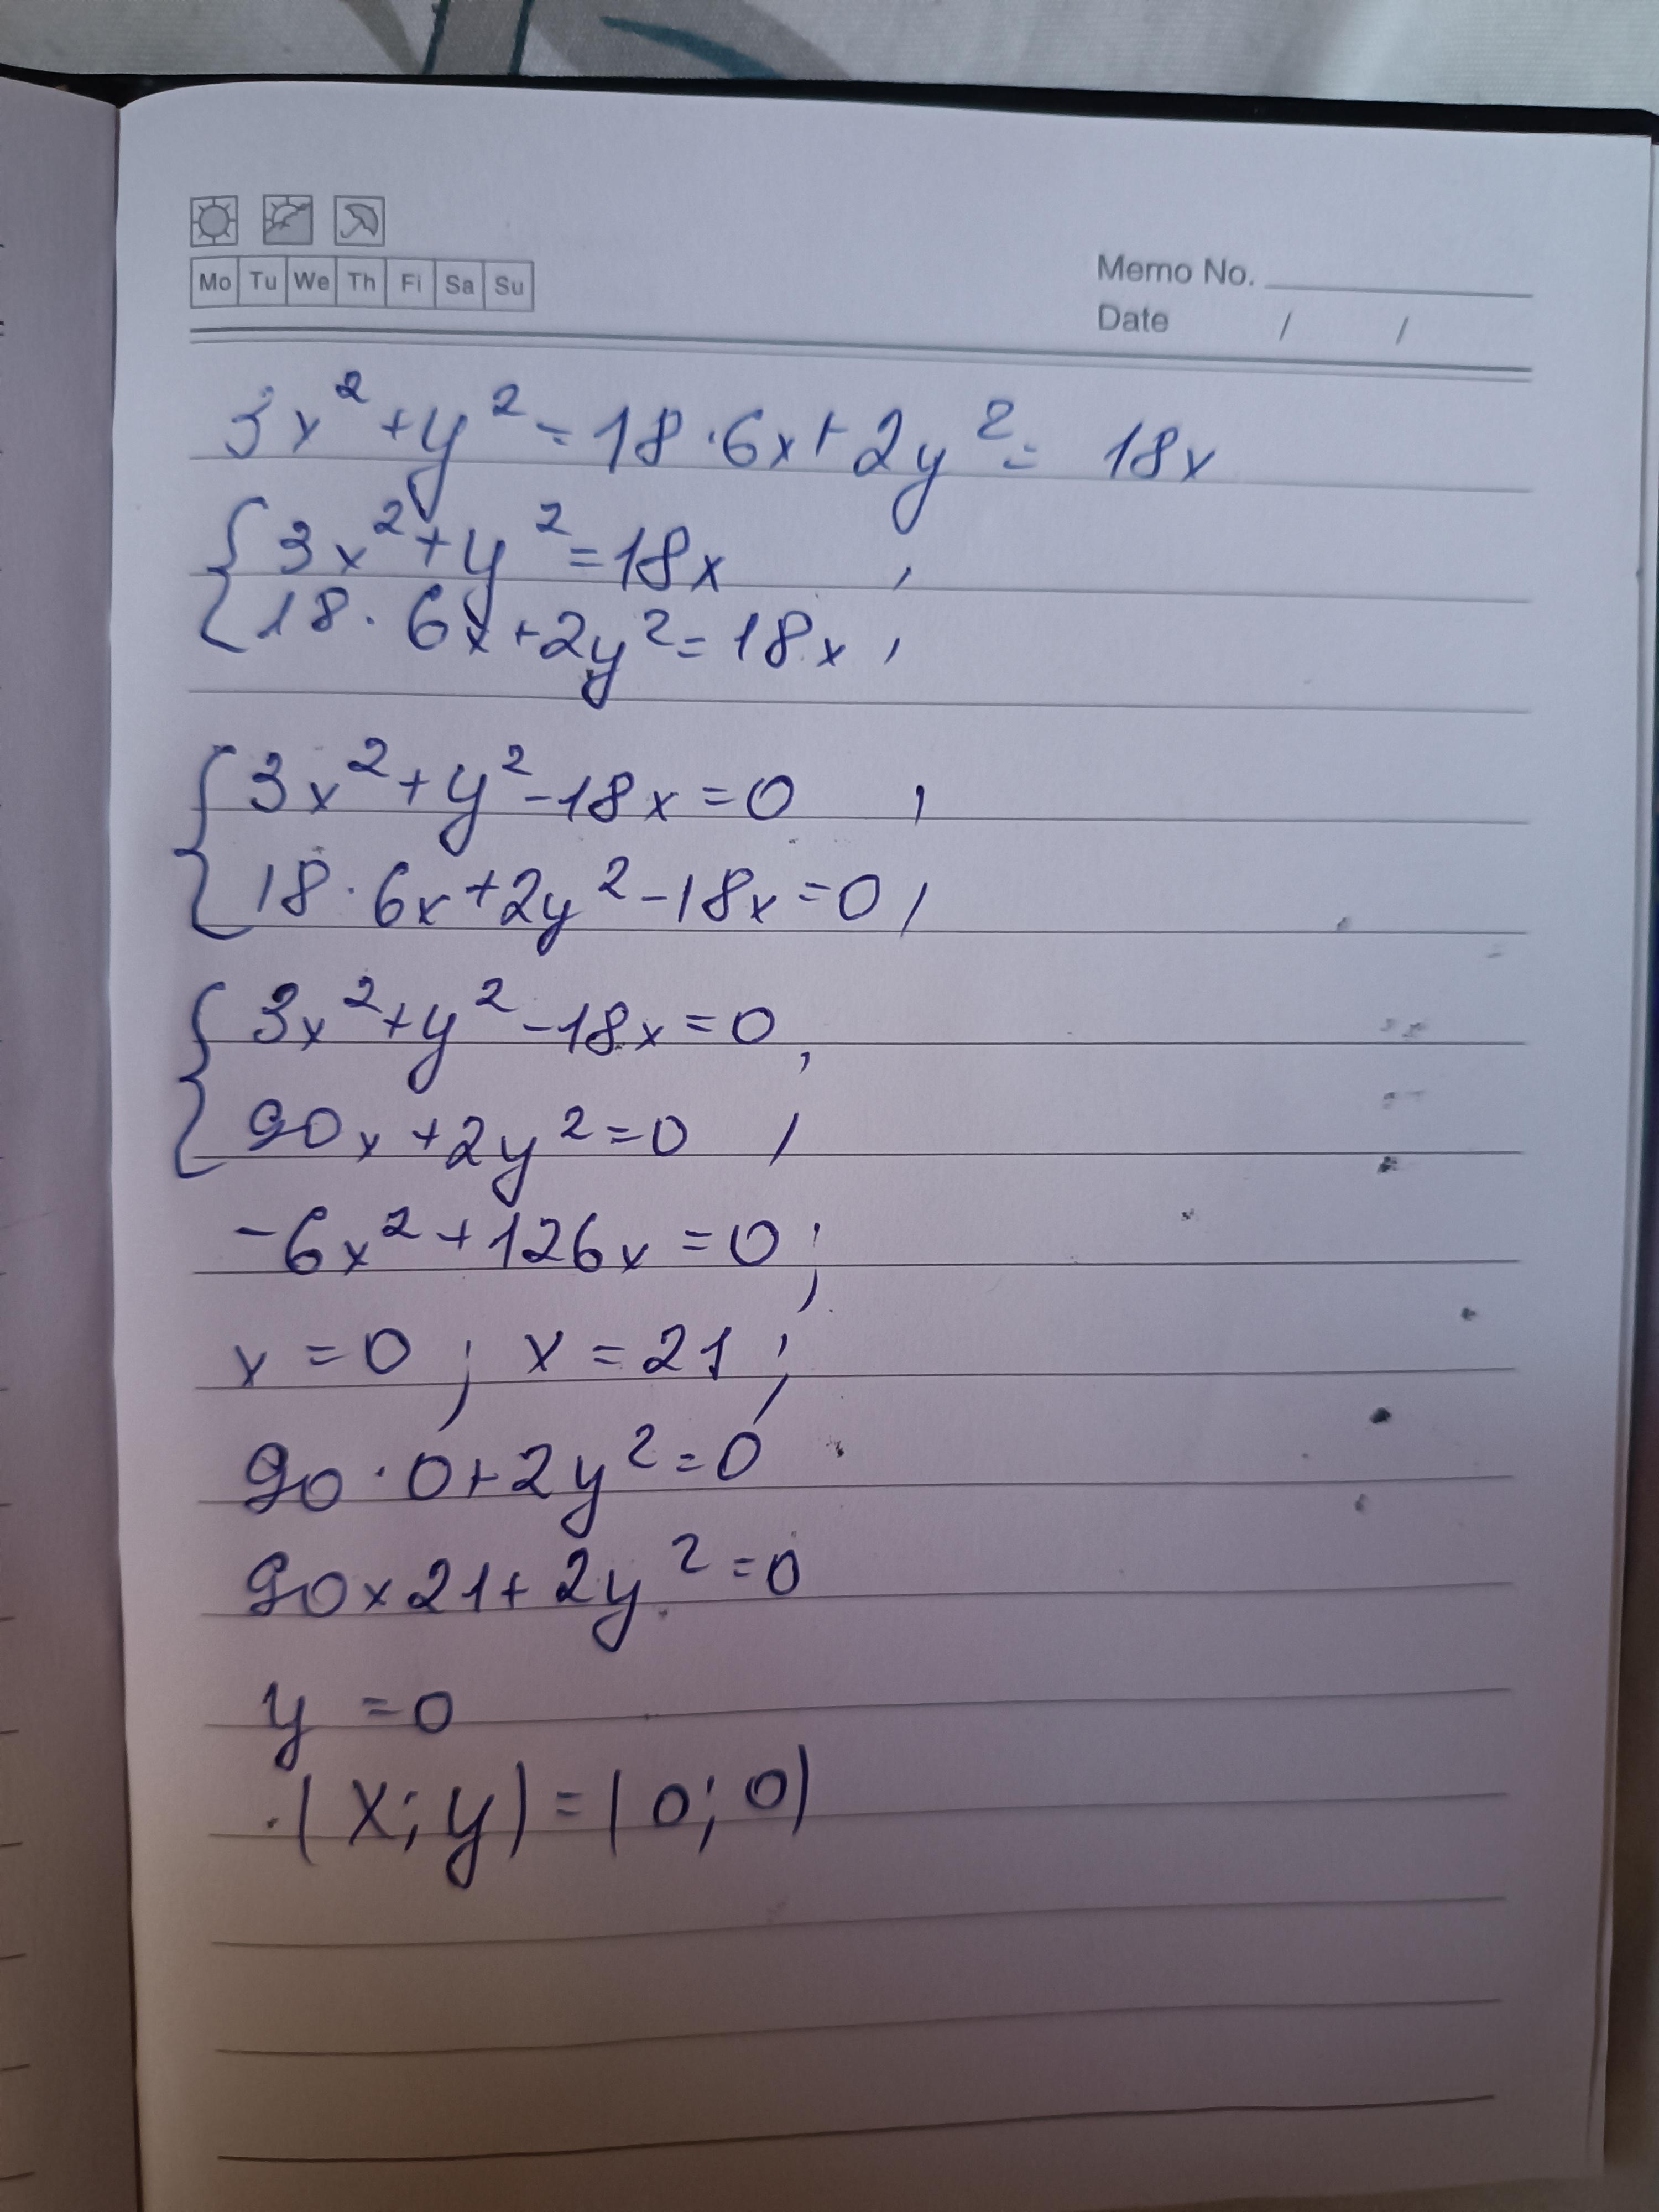 Mo Tu We Th Fi Sa Su
Memo No.
Date / /
3x²+y²=18·6x+2y²= 18x
{3x²+y²=18x ,
{18·6x+2y²=18x ,
{3x²+y²-18x=0 ,
{18·6x+2y²-18x=0 ,
{3x²+y²-18x=0 ,
{90x+2y²=0 ,
-6x²+126x=0;
x=0; x=21;
90·0+2y²=0
90×21+2y²=0
y=0
(x;y)=(0;0)